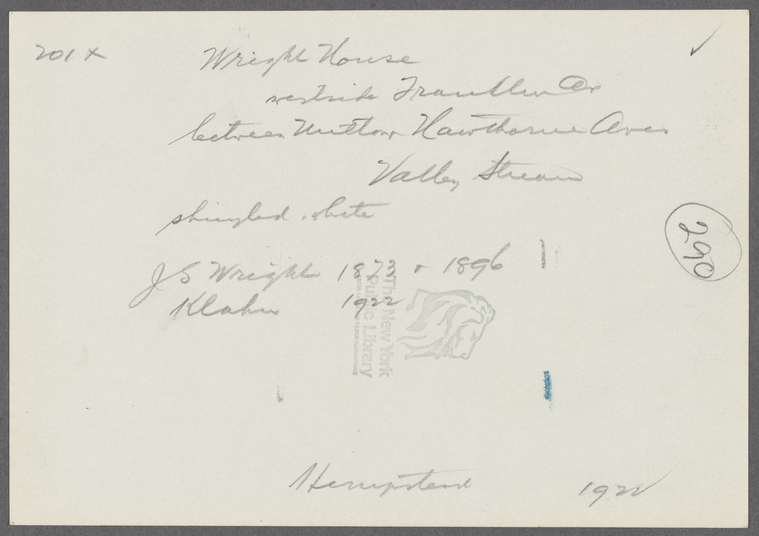 201 x
Wright House
westside Franklin Av
between Hawthorne Aves
Valley Stream
shingled, white
290
J S Wright 1873 + 1896
Klahn 1922
The New York
Public Library
Hempstead 1922